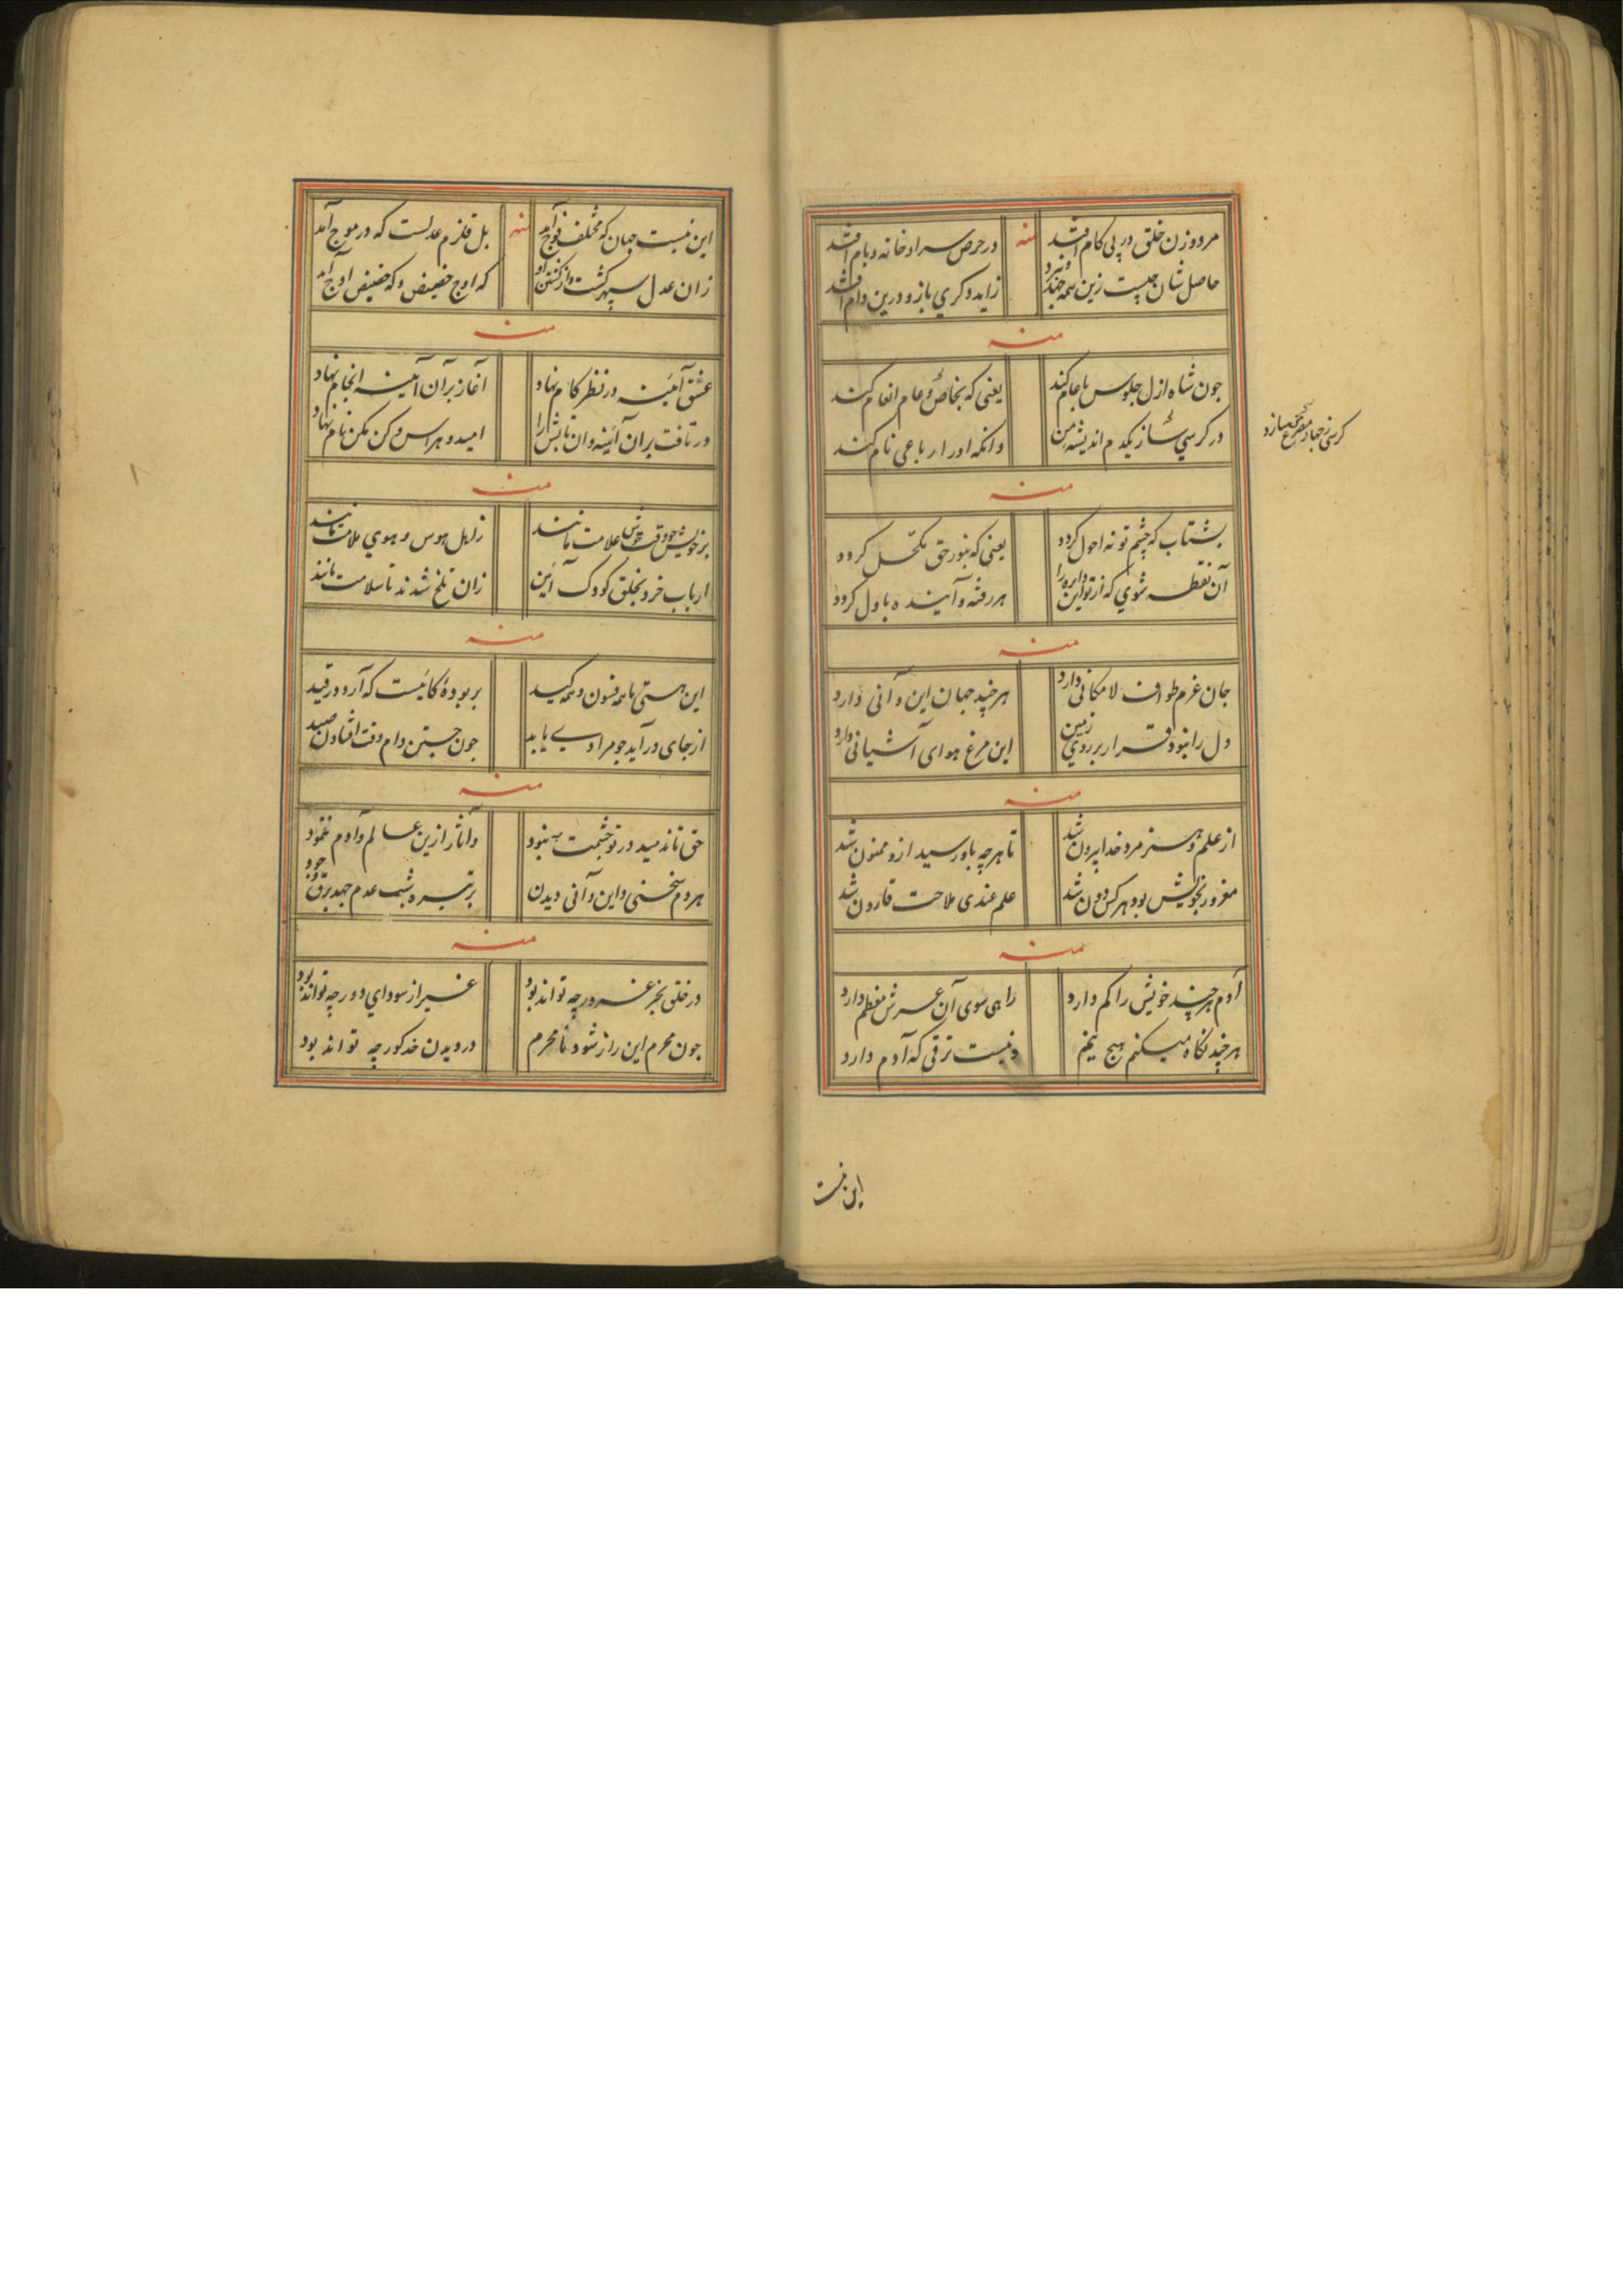 مرد و زن خلق در پی کام افتد
منه
در حرص سرا و خانه و بام افتد
حاصل شان چیست زین همه
زاید دگری باز و درین دام افتد
منه
چون شاه ازل جلوس با عام کند
یعنی که بخاص و عام انعام کند
در کرسی ساز یکدم اندیشه من
وانکه او را رباعی نام کند
کرسی ز چهار مصرع میسازد
منه
بشتاب که چشم تو نه احول گردد
یعنی که بنور حق مکحّل گردد
آن نقطه شوی که از تو این دایره را
هر رفته و آینده باول گردد
منه
جان عزم طواف لامکانی دارد
هر چند جهان این و آنی دارد
دل را نبود قرار بر روی زمین
این مرغ هوای آشیانی دارد
منه
از علم و هنر مرد خدا بیرون شد
تا هر چه باو رسید ازو ممنون شد
مغرور بخویش بود هر کس دون شد
علم عندی ملاحت قارون شد
منه
آدم هر چند خویش را کم دارد
راهی سوی آن عرش معظم دارد
هر چند نگاه میکنم هیچ نیم
و نیست ترقی که آدم دارد
این نیست
این نیست جهان که مختلف فوج آمد
منه
بل قلزم عدلست که در موج آمد
زان عدل سپهر گشت و از گشتن او
که اوج حضیض و که حضیض اوج آمد
منه
عشق آینه در نظر کام نهاد
آغاز بر آن آینه انجام نهاد
در تافت بران آئینه و ان تابش را
امید و هراس و کن مکن نام نهاد
منه
بر خویش چو وقت خوش علامت مانند
ز اهل هوس و هوی ملامت مانند
ارباب خرد بخلق کودک آئین
زان تلخ شدند تا سلامت مانند
منه
این هستی با همه فسون و همه کید
بربودهٔ کانیست که آرد در قید
از جای در آید چو مرادی یابد
چون جستن دام وقت افتادن صید
منه
حق تا ندمید در تو چشمت نبود
و آثار ازین عالم و آدم ننمود
هر دم سخنی و این و آنی دیدن
بر تیره شب عدم جهد برق وجود
منه
در خلق بجز غرور چه تواند بود
غیر از سودای دور چه تواند بود
چون محرم این راز شود نامحرم
در دیدن خد کور چه تواند بود